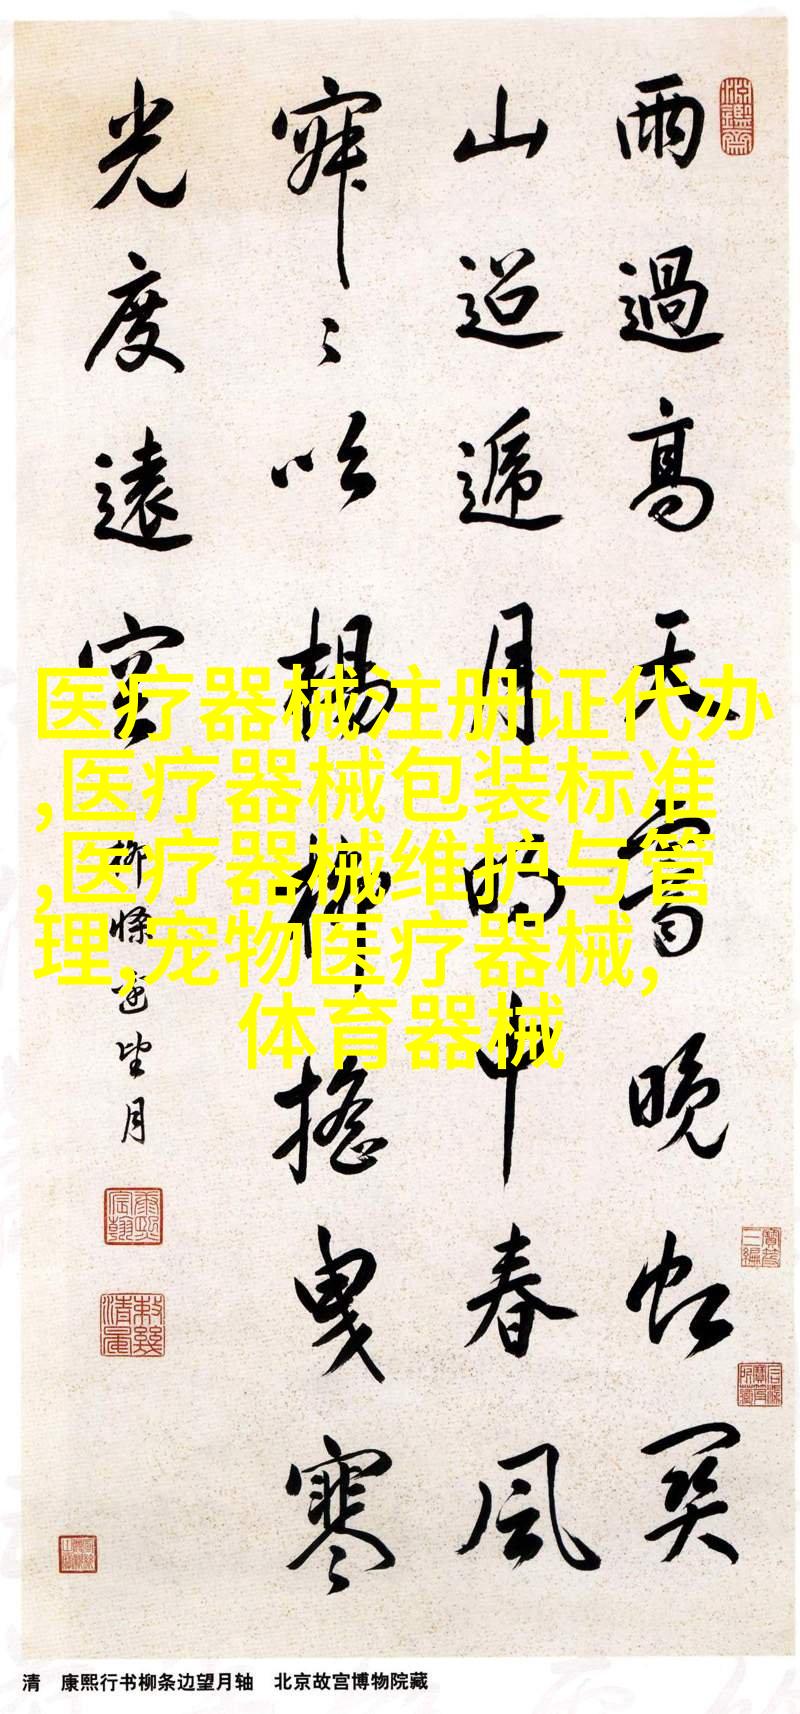 雨過高天霽晚虹關
山迢遞月明中春風
寂〻吹楊柳搖曳寒
光度遠空
柳條邊望月
医疗器械注册证代办
,医疗器械包装标准
,医疗器械维护与管
理,宠物医疗器械,
体育器械
清 康熙行书柳条边望月轴 北京故宫博物院藏